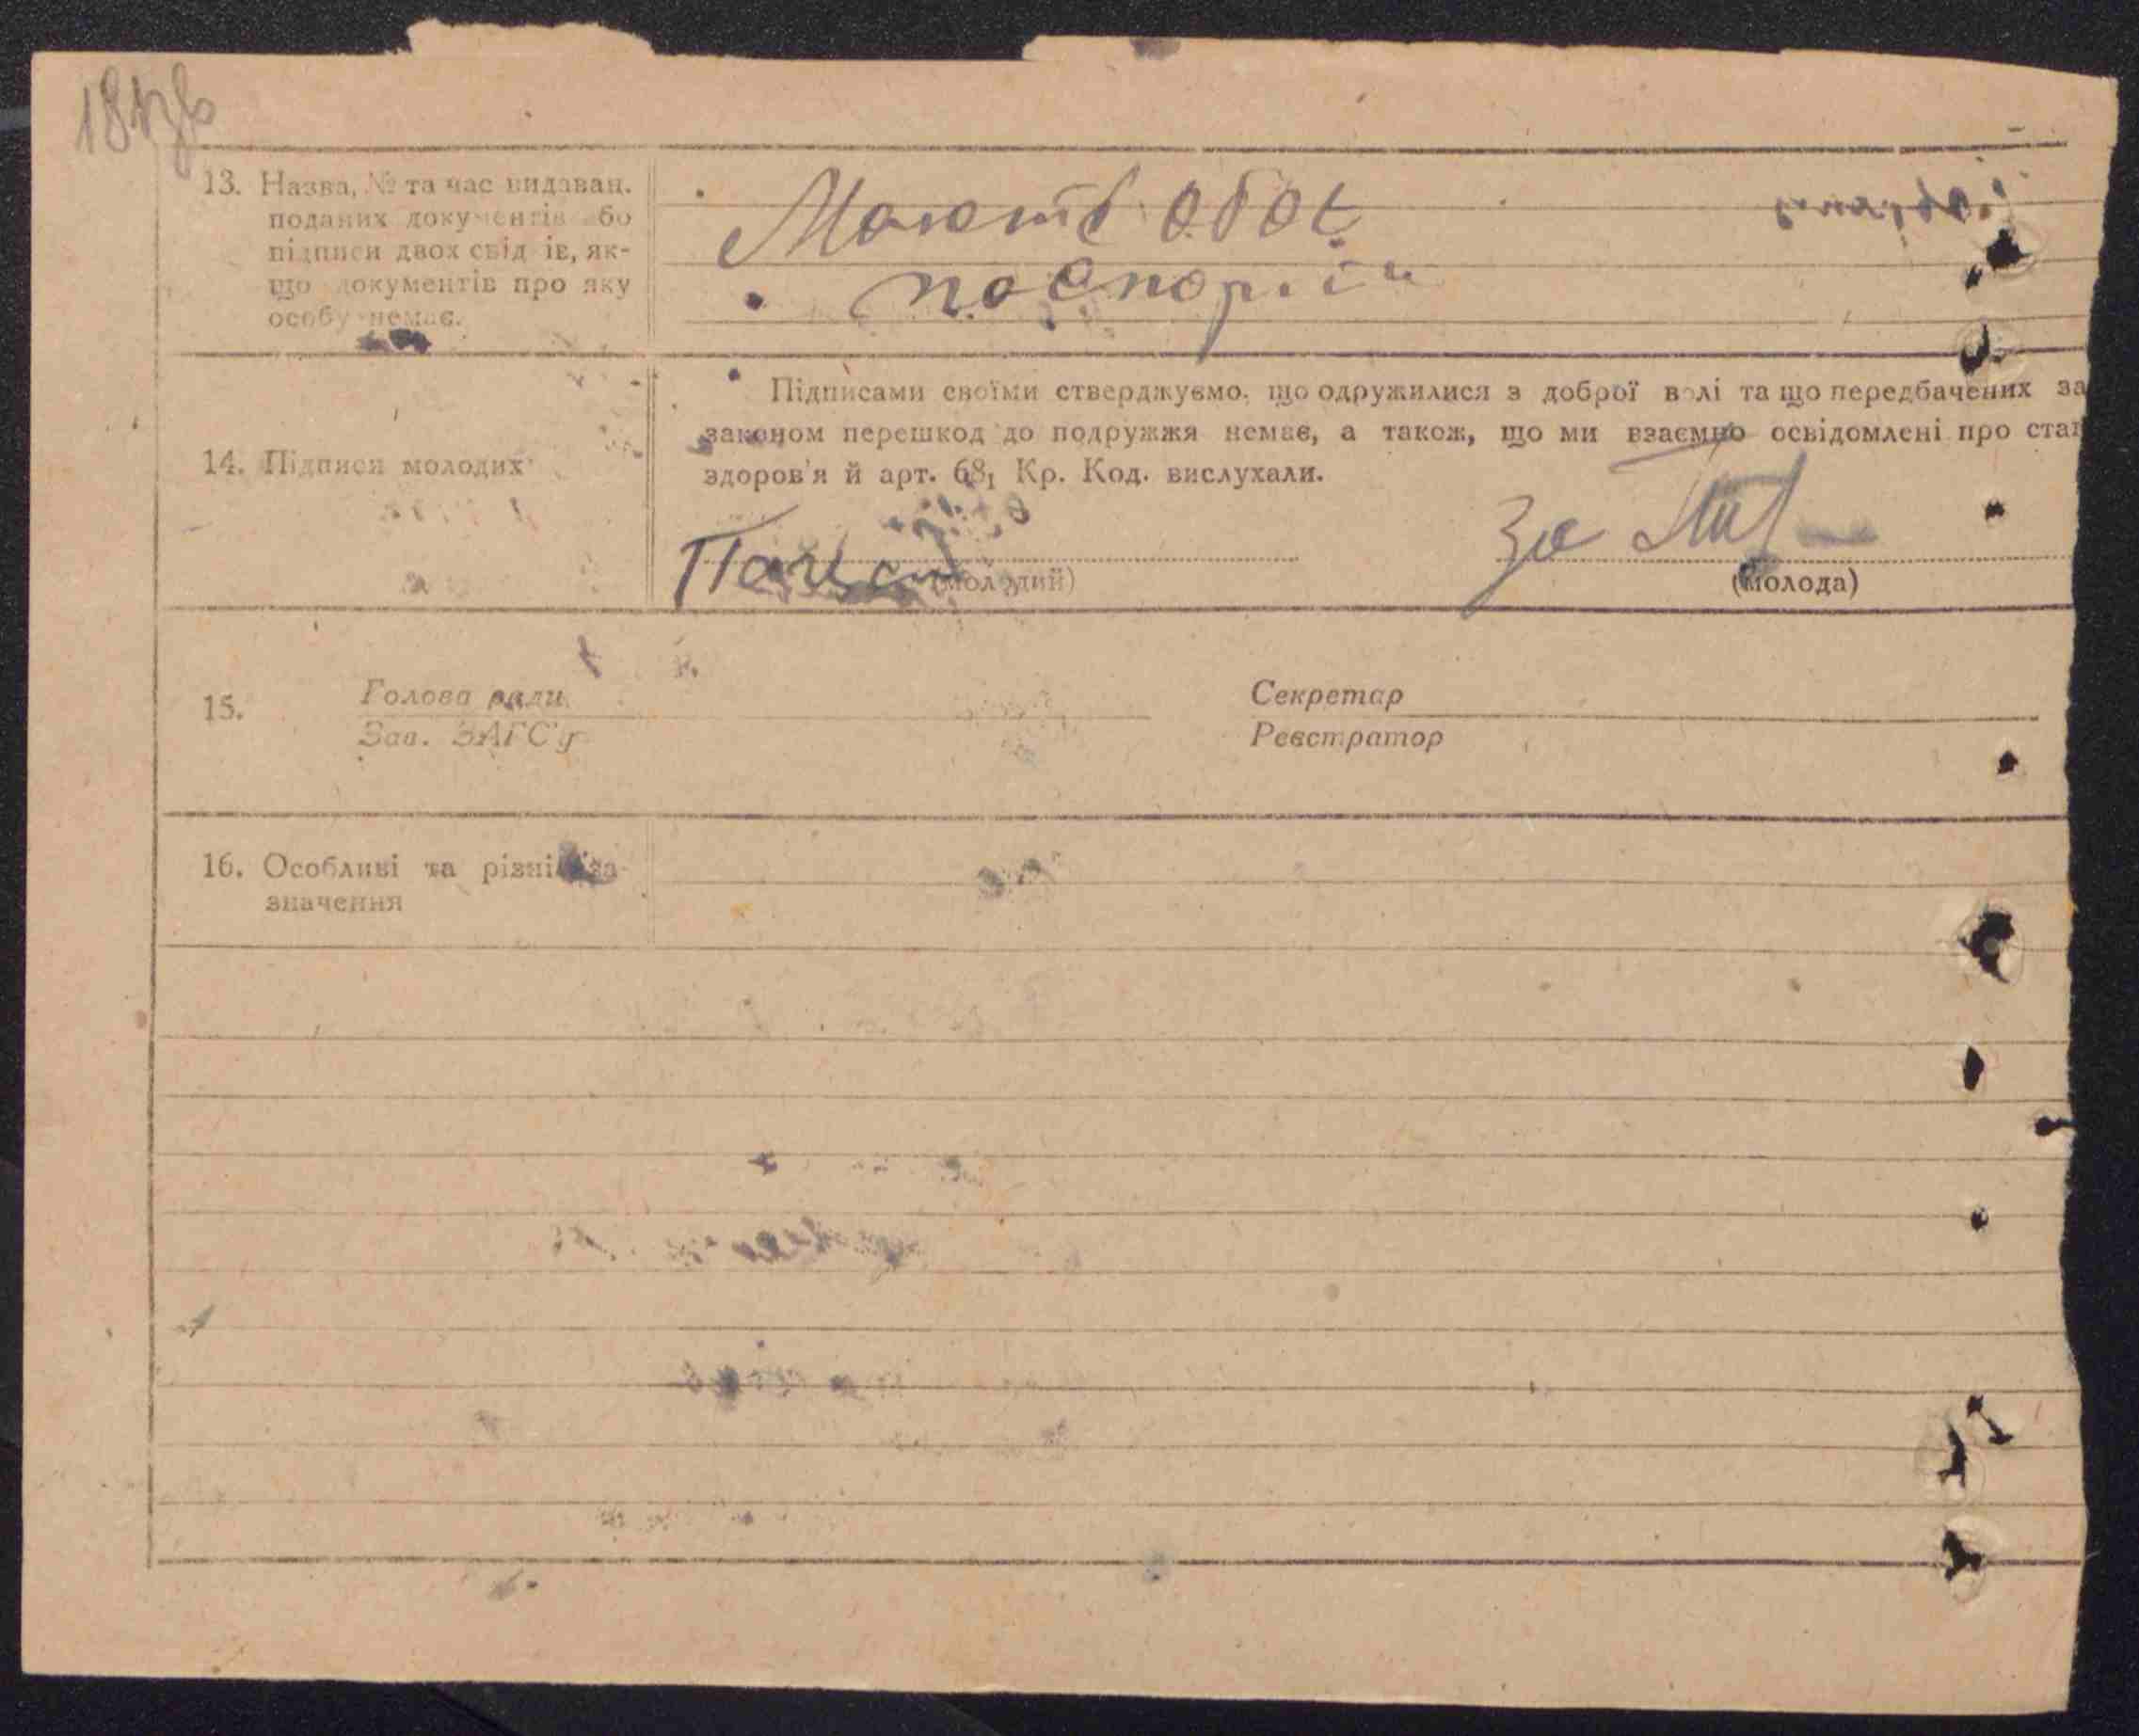 13. Назва, № та час видаван.
поданих документів або
підписи двох свідків, як-
що документів про яку
особу немає.
Мають обоє
паспорти
14. Підписи молодих
Підписами своїми стверджуємо, що одружилися з доброї волі та що передбачених за
законом перешкод до подружжя немає, а також, що ми взаємно освідомлені про стан
здоров'я й арт. 68₁ Кр. Код. вислухали.
За
(молодий)
(молода)
15.
Голова ради
Зав. ЗАГС'у
Секретар
Реєстратор
16. Особливі та різні за-
значення